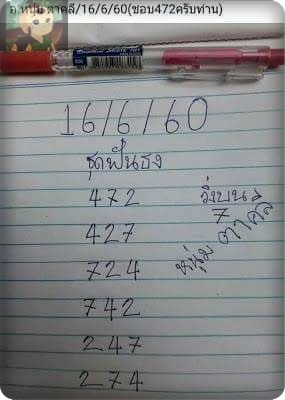 อ.หนุ่ม ตาคลี/16/6/60(ชอบ472ครับท่าน)
16/6/60
ชุดฟันธง
472
427
724
742
247
274
วิ่งบน
7
หนุ่ม ตาคลี